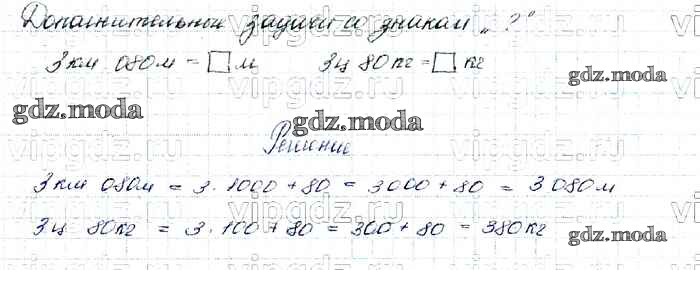 Дополнительной задачи со знаком „?"
3 км 080 м = □ м 3 ц 80 кг = □ кг
gdz.moda
gdz.moda
gdz.moda
Решение
3 км 080 м = 3 · 1000 + 80 = 3000 + 80 = 3 080 м
3 ц 80 кг = 3 · 100 + 80 = 300 + 80 = 380 кг
gdz.moda